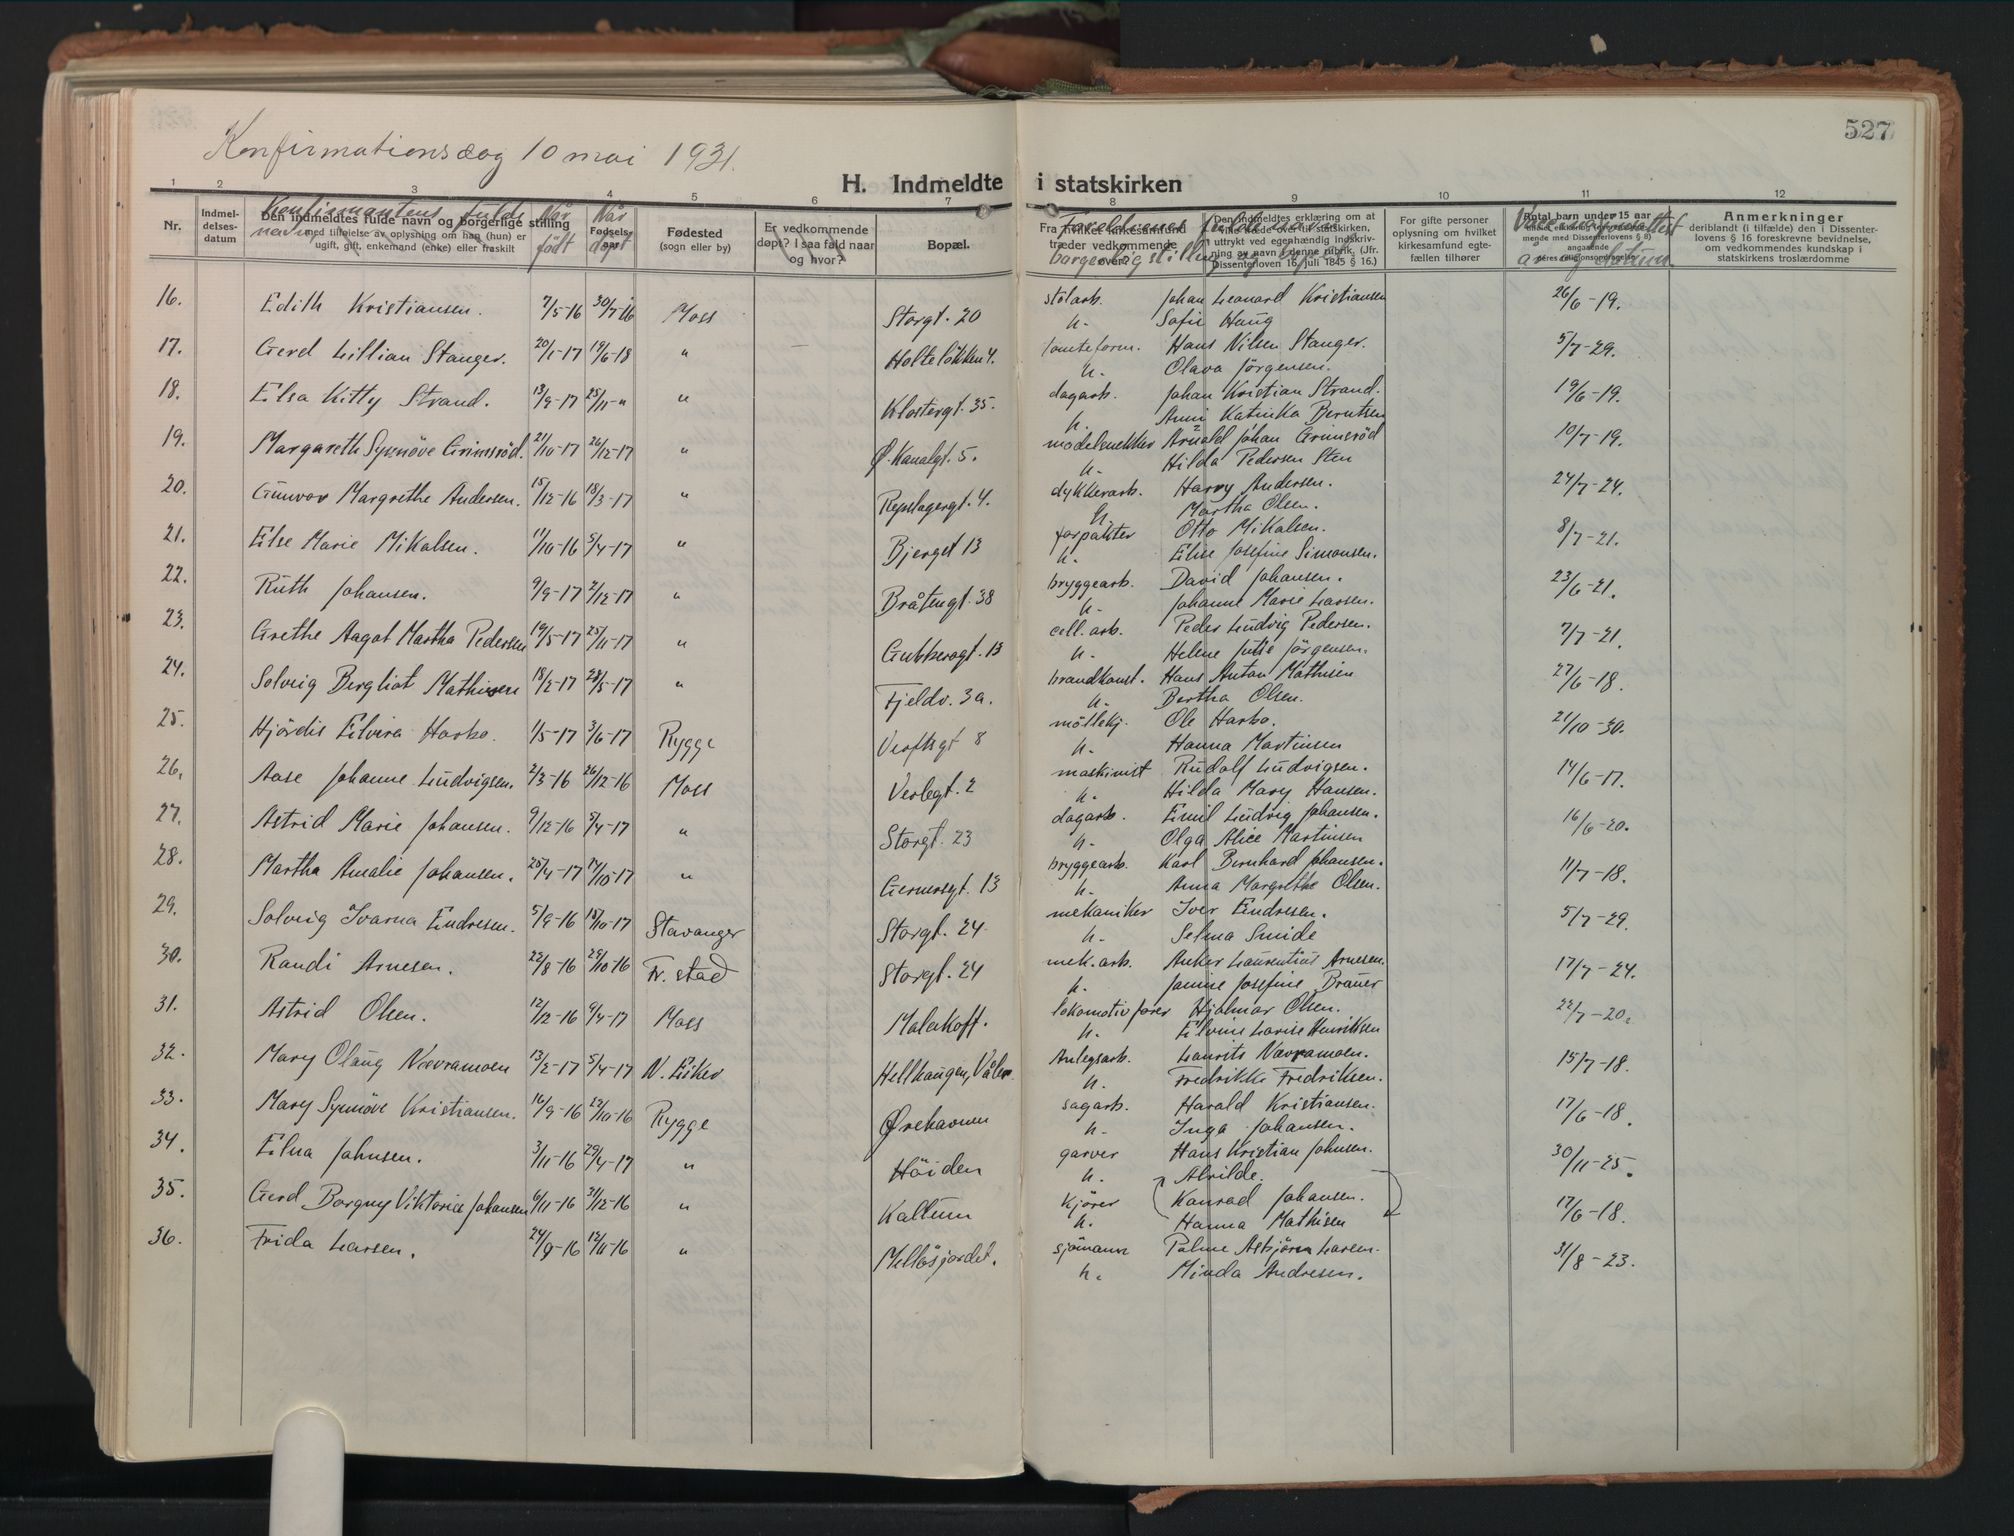 527
Konfirmationsdag 10 mai 1931.
H. Indmeldte i statskirken
1 2 3 4 5 6 7 8 9 10 11 12
Nr.
Indmeldelsesdatum
Den indmeldtes fulde navn og borgerlige stilling
med tilføielse av oplysning om han (hun) er
ugift, gift, enkemand (enke) eller fraskilt
Konfirmantens fulde navn
Når født
Fødselsaar
Når døpt
Fødested
(sogn eller by)
Er vedkommende
døpt? I saa fald naar
og hvor?
Bopæl.
Fra hvilket kirkesamfund
træder vedkommende
over?
Forældrenes fulde navn
borgerlig stilling
Den indmeldtes erklæring om at
ville træde over i statskirken,
uttrykt ved egenhændig indskrivning
av navn i denne rubrik. (Jfr.
Dissenterloven 16. juli 1845 § 16.)
For gifte personer
oplysning om hvilket
kirkesamfund egtefællen
tilhører
Antal barn under 15 aar
Anmerkninger
deriblandt (i tilfælde) den i Dissenterlovens
§ 16 foreskrevne bevidnelse,
om vedkommendes kundskap i
statskirkens troslærdomme
16. Edith Kristiansen. 7/5-16 30/7-16 Moss Storgt. 20 stølarb. Johan Leonard Kristiansen 26/6-19.
h. Sofie Haug
17. Gerd Lillian Stanger. 20/1-17 19/6-18 " — Holteløkken 4. tomteform. Hans Nilsen Stanger. 5/7-29.
h. Olava Jørgensen.
18. Elsa Kitty Strand. 13/9-17 25/11-" " Klostergt. 35. dagarb. Johan Kristian Strand. 19/6-19.
h. Anni Katinka Berntsen
19. Margareth Synnöve Grimsröd. 21/10-17 26/12-17 " Ø. Kanalgt. 5. modelsnekker Arnold Johan Grimsröd 10/7-19.
h. Hilda Pedersen Sten
20. Gunvor Margrethe Andersen. 15/12-16 18/3-17 " Repslagergt. 4. dykkerarb. Harry Andersen. 24/7-24.
h. Martha Olsen.
21. Else Marie Mikalsen. 11/10-16 5/4-17 " Bjerget 13 forpakter Otto Mikalsen. 8/7-21.
h. Elise Josefine Simonsen.
22. Ruth Johansen. 9/9-17 2/12-17 " Bråtengt. 38 bryggearb. David Johansen. 23/6-21.
h. Johanne Marie Larsen.
23. Grethe Aagot Martha Pedersen 19/5-17 25/11-17 " Gubberogt. 13 cell. arb. Peder Ludvig Pedersen. 7/7-21.
h. Helene Julie Jörgensen.
24. Solveig Bergliot Mathisen 18/2-17 28/5-17 " Fjeldv. 3a. brandkonst. Hans Anton Mathisen 27/6-18.
h. Bertha Olsen.
25. Hjördis Elvira Harbo. 1/5-17 3/6-17 Rygge Verftsgt 8 möllekj. Ole Harbo. 21/10-30.
h. Hanna Martinsen
26. Aase Johanne Ludvigsen. 2/3-16 26/12-16 Moss Verlegt. 2 maskinist Rudolf Ludvigsen. 14/6-17.
h. Hilda Mary Hansen.
27. Astrid Marie Johansen. 9/12-16 5/4-17 " Storgt. 23 dagarb. Emil Ludvig Johansen. 16/6-20.
h. Olga Alice Martinsen
28. Martha Amalie Johansen. 25/4-17 14/10-17 " Gernersgt. 13 bryggearb. Karl Bernhard Johansen. 11/7-18.
h. Anna Margrethe Olsen.
29. Solveig Ivarna Endresen. 5/9-16 15/10-17 Stavanger Storgt. 24 mekaniker Iver Endresen. 5/7-29.
h. Selma Smide
30. Randi Arnesen. 22/8-16 29/10-16 Fr.stad Storgt. 24 mek. arb. Anker Laurentius Arnesen. 17/7-24.
h. Janine Josefine Brauer
31. Astrid Olsen. 12/12-16 9/4-17 Moss Malakoff. lokomotivfører Hjalmar Olsen. 22/7-20.
h. Elvine Lovise Henriksen
32. Mary Olaug Nævramoen 13/2-17 5/4-17 N. Eiker Hellhaugen, Våler. Anlegsarb. Laurits Nævramoen. 15/7-18.
h. Fredrikke Fredriksen.
33. Mary Synnöve Kristiansen. 16/9-16 22/10-16 Rygge Ørehavnen sagarb. Harald Kristiansen. 17/6-18.
h. Inga Johansen.
34. Elna Johnsen. 3/11-16 29/4-17 " Höiden garver Hans Kristian Johnsen. 30/11-25.
h. Alvilde.
35. Gerd Borgny Viktorie Johansen 6/11-16 31/12-16 " Kallum kjører Konrad Johansen. 17/6-18.
h. Hanna Mathisen
36. Frida Larsen. 24/9-16 12/11-16 " Mellösjordet. sjömann Palme Asbjørn Larsen. 31/8-23.
h. Minda Andresen.